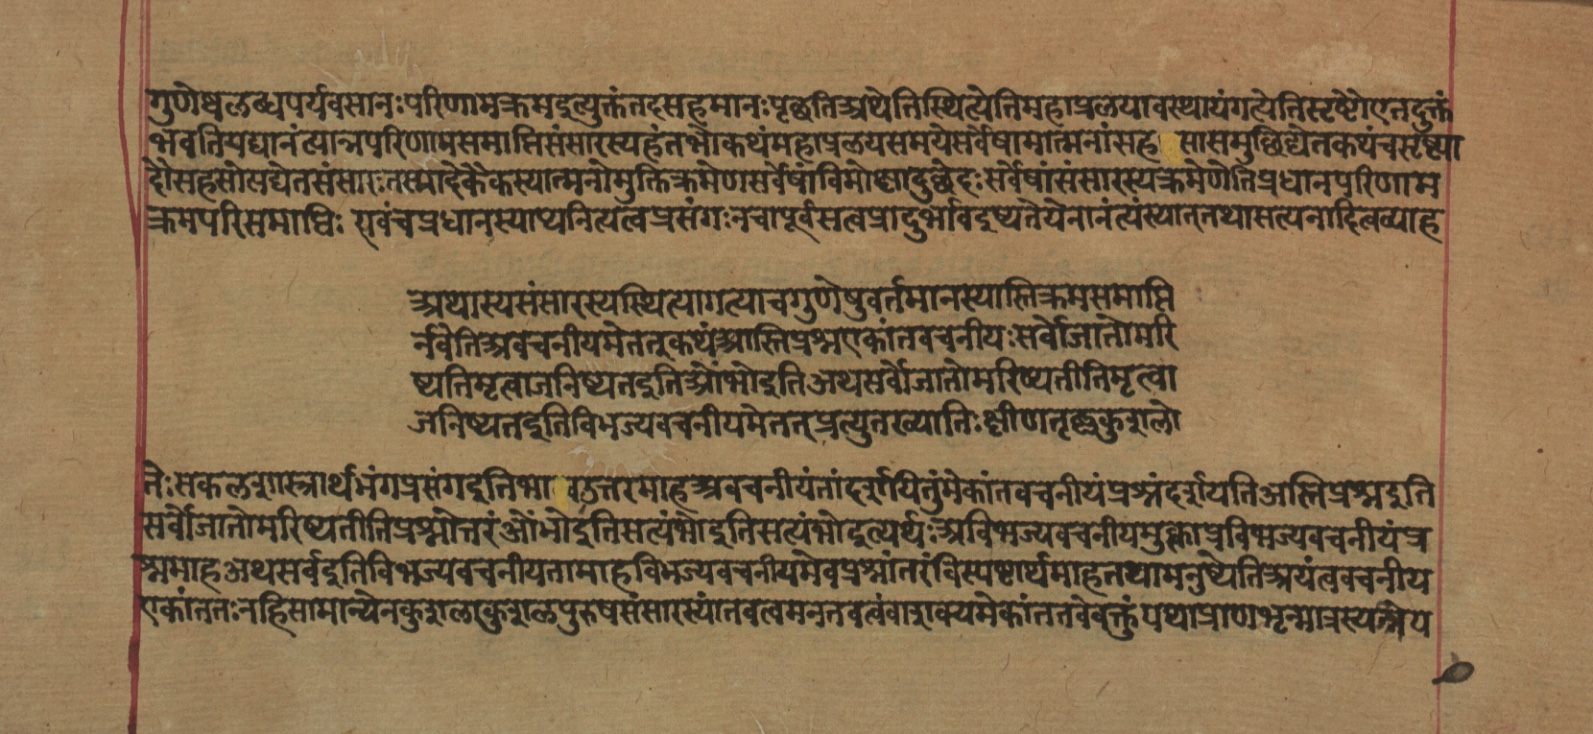 गुणेष्वलब्धपर्यवसानःपरिणामक्रमइत्युक्तंतदसहमानःपृछतिअथेतिस्थित्येतिमहाप्रलयावस्थायंगत्येतिसृष्टौएतदुक्तं
भवतियद्यानंत्यान्नपरिणामसमाप्तिसंसारस्यहंतभोकथंमहाप्रलयसमयेसर्वेषामात्मनांसह सासमुछिद्येतकथंचसृष्ट्या
दौसहसोत्पद्येतसंसारःतस्मादेकैकस्यात्मनोमुक्तिक्रमेणसर्वेषांविमोक्षादुछेदःसर्वेषांसंसारस्यक्रमेणेतिप्रधानपरिणाम
क्रमपरिसमाप्तिः एवंचप्रधानस्याप्यनित्यत्वप्रसंगःनचापूर्वसत्वप्रादुर्भावइष्यतेयेनानंत्यंस्यात्तथासत्यनादित्वव्याह
अथास्यसंसारस्यस्थित्यागत्याचगुणेषुवर्तमानस्यास्तिक्रमसमाप्ति
र्नवेतिअवचनीयमेतत्कथंआस्तिप्रश्नएकांतवचनीयःसर्वोजातोमरि
ष्यतिमृत्वाजनिष्यतइतिओंभोइतिअथसर्वोजातोमरिष्यतीतिमृत्वा
जनिष्यतइतिविभज्यवचनीयमेतत्प्रत्युतख्यातिःक्षीणतृष्णकुशलो
तेःसकलशास्त्रार्थभंगप्रसंगइतिभा वउत्तरमाहअवचनीयंतांदर्शयितुंमेकांतवचनीयंप्रश्नंदर्शयतिअस्तिप्रश्नइति
सर्वोजातोमरिष्यतीतिप्रश्नोत्तरंओंभोइतिसत्यंभोइतिसत्यंभोइत्यर्थःअविभज्यवचनीयमुक्ताप्रविभज्यवचनीयंप्र
श्नमाहअथसर्वइतिविभज्यवचनीयतामाहविभज्यवचनीयमेवप्रश्नांतरंविस्पष्टार्थमाहतथामनुष्येतिअयंत्ववचनीय
एकांततःनहिसामान्येनकुशलाकुशलपुरुषसंसारस्यांतवत्वमनंतवत्वंवाशक्यमेकांततवेवक्तुंयथाप्राणभृन्मात्रस्य